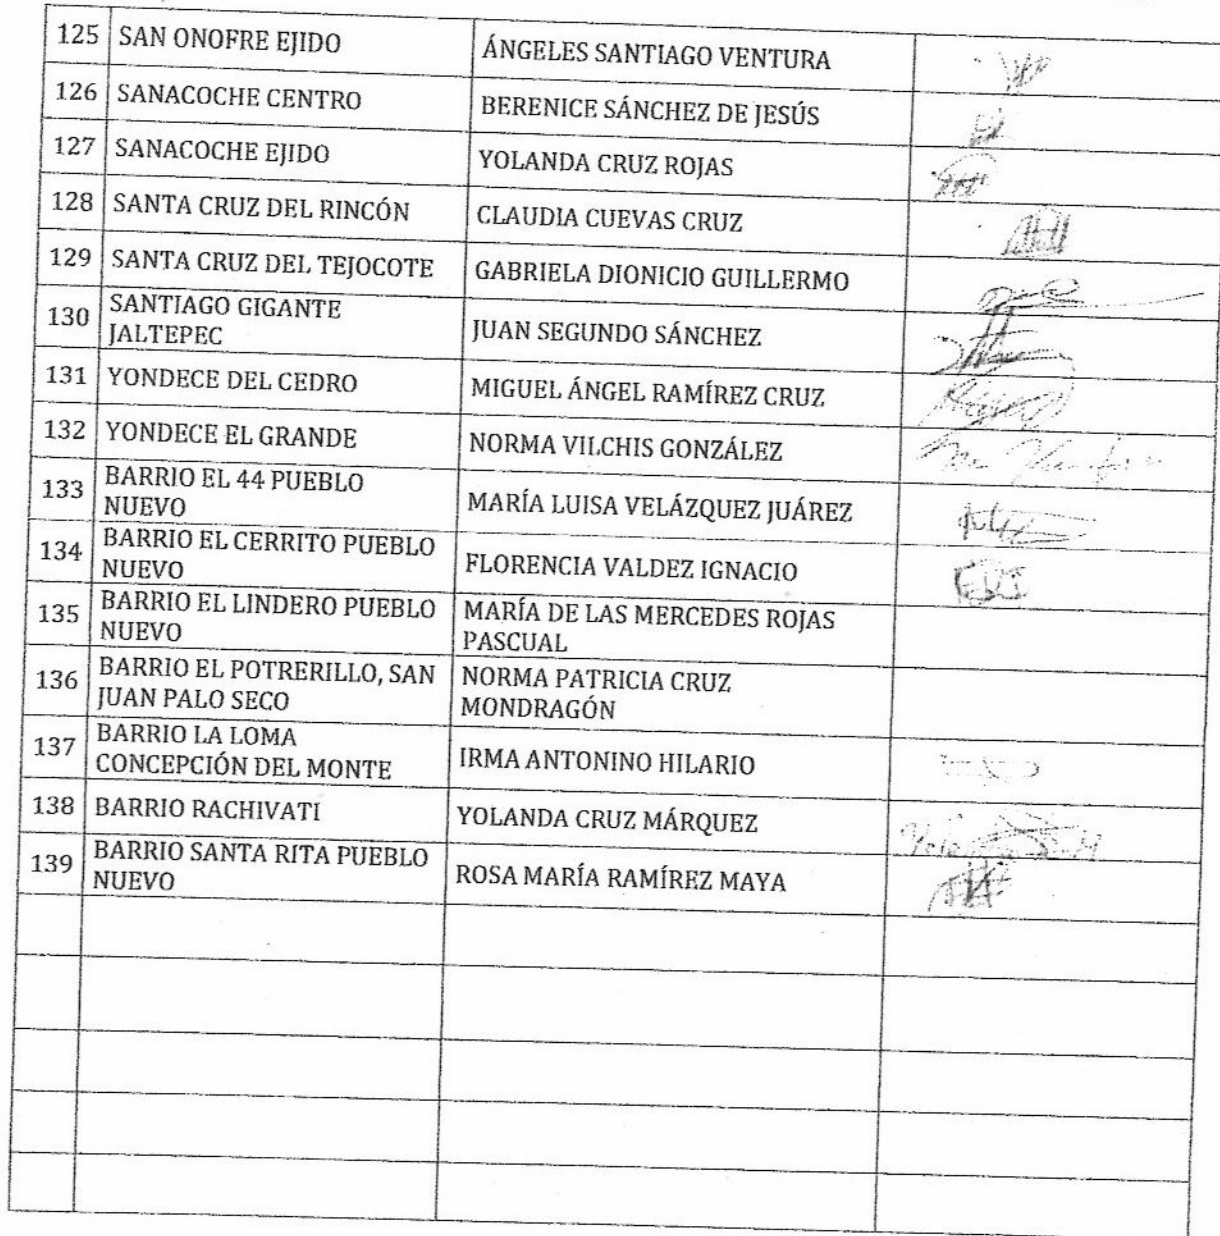 125 SAN ONOFRE EJIDO ÁNGELES SANTIAGO VENTURA
126 SANACOCHE CENTRO BERENICE SÁNCHEZ DE JESÚS
127 SANACOCHE EJIDO YOLANDA CRUZ ROJAS
128 SANTA CRUZ DEL RINCÓN CLAUDIA CUEVAS CRUZ
129 SANTA CRUZ DEL TEJOCOTE GABRIELA DIONICIO GUILLERMO
130 SANTIAGO GIGANTE
JALTEPEC
JUAN SEGUNDO SÁNCHEZ
131 YONDECE DEL CEDRO MIGUEL ÁNGEL RAMÍREZ CRUZ
132 YONDECE EL GRANDE NORMA VILCHIS GONZÁLEZ
133 BARRIO EL 44 PUEBLO
NUEVO
MARÍA LUISA VELÁZQUEZ JUÁREZ
134 BARRIO EL CERRITO PUEBLO
NUEVO
FLORENCIA VALDEZ IGNACIO
135 BARRIO EL LINDERO PUEBLO
NUEVO
MARÍA DE LAS MERCEDES ROJAS
PASCUAL
136 BARRIO EL POTRERILLO, SAN
JUAN PALO SECO
NORMA PATRICIA CRUZ
MONDRAGÓN
137 BARRIO LA LOMA
CONCEPCIÓN DEL MONTE
IRMA ANTONINO HILARIO
138 BARRIO RACHIVATI YOLANDA CRUZ MÁRQUEZ
139 BARRIO SANTA RITA PUEBLO
NUEVO
ROSA MARÍA RAMÍREZ MAYA